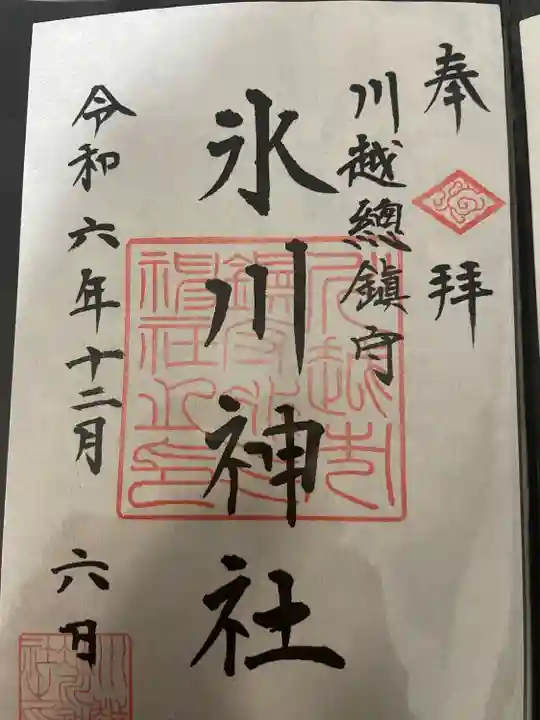 奉拝
川越總鎮守
氷川神社
令和六年十二月六日